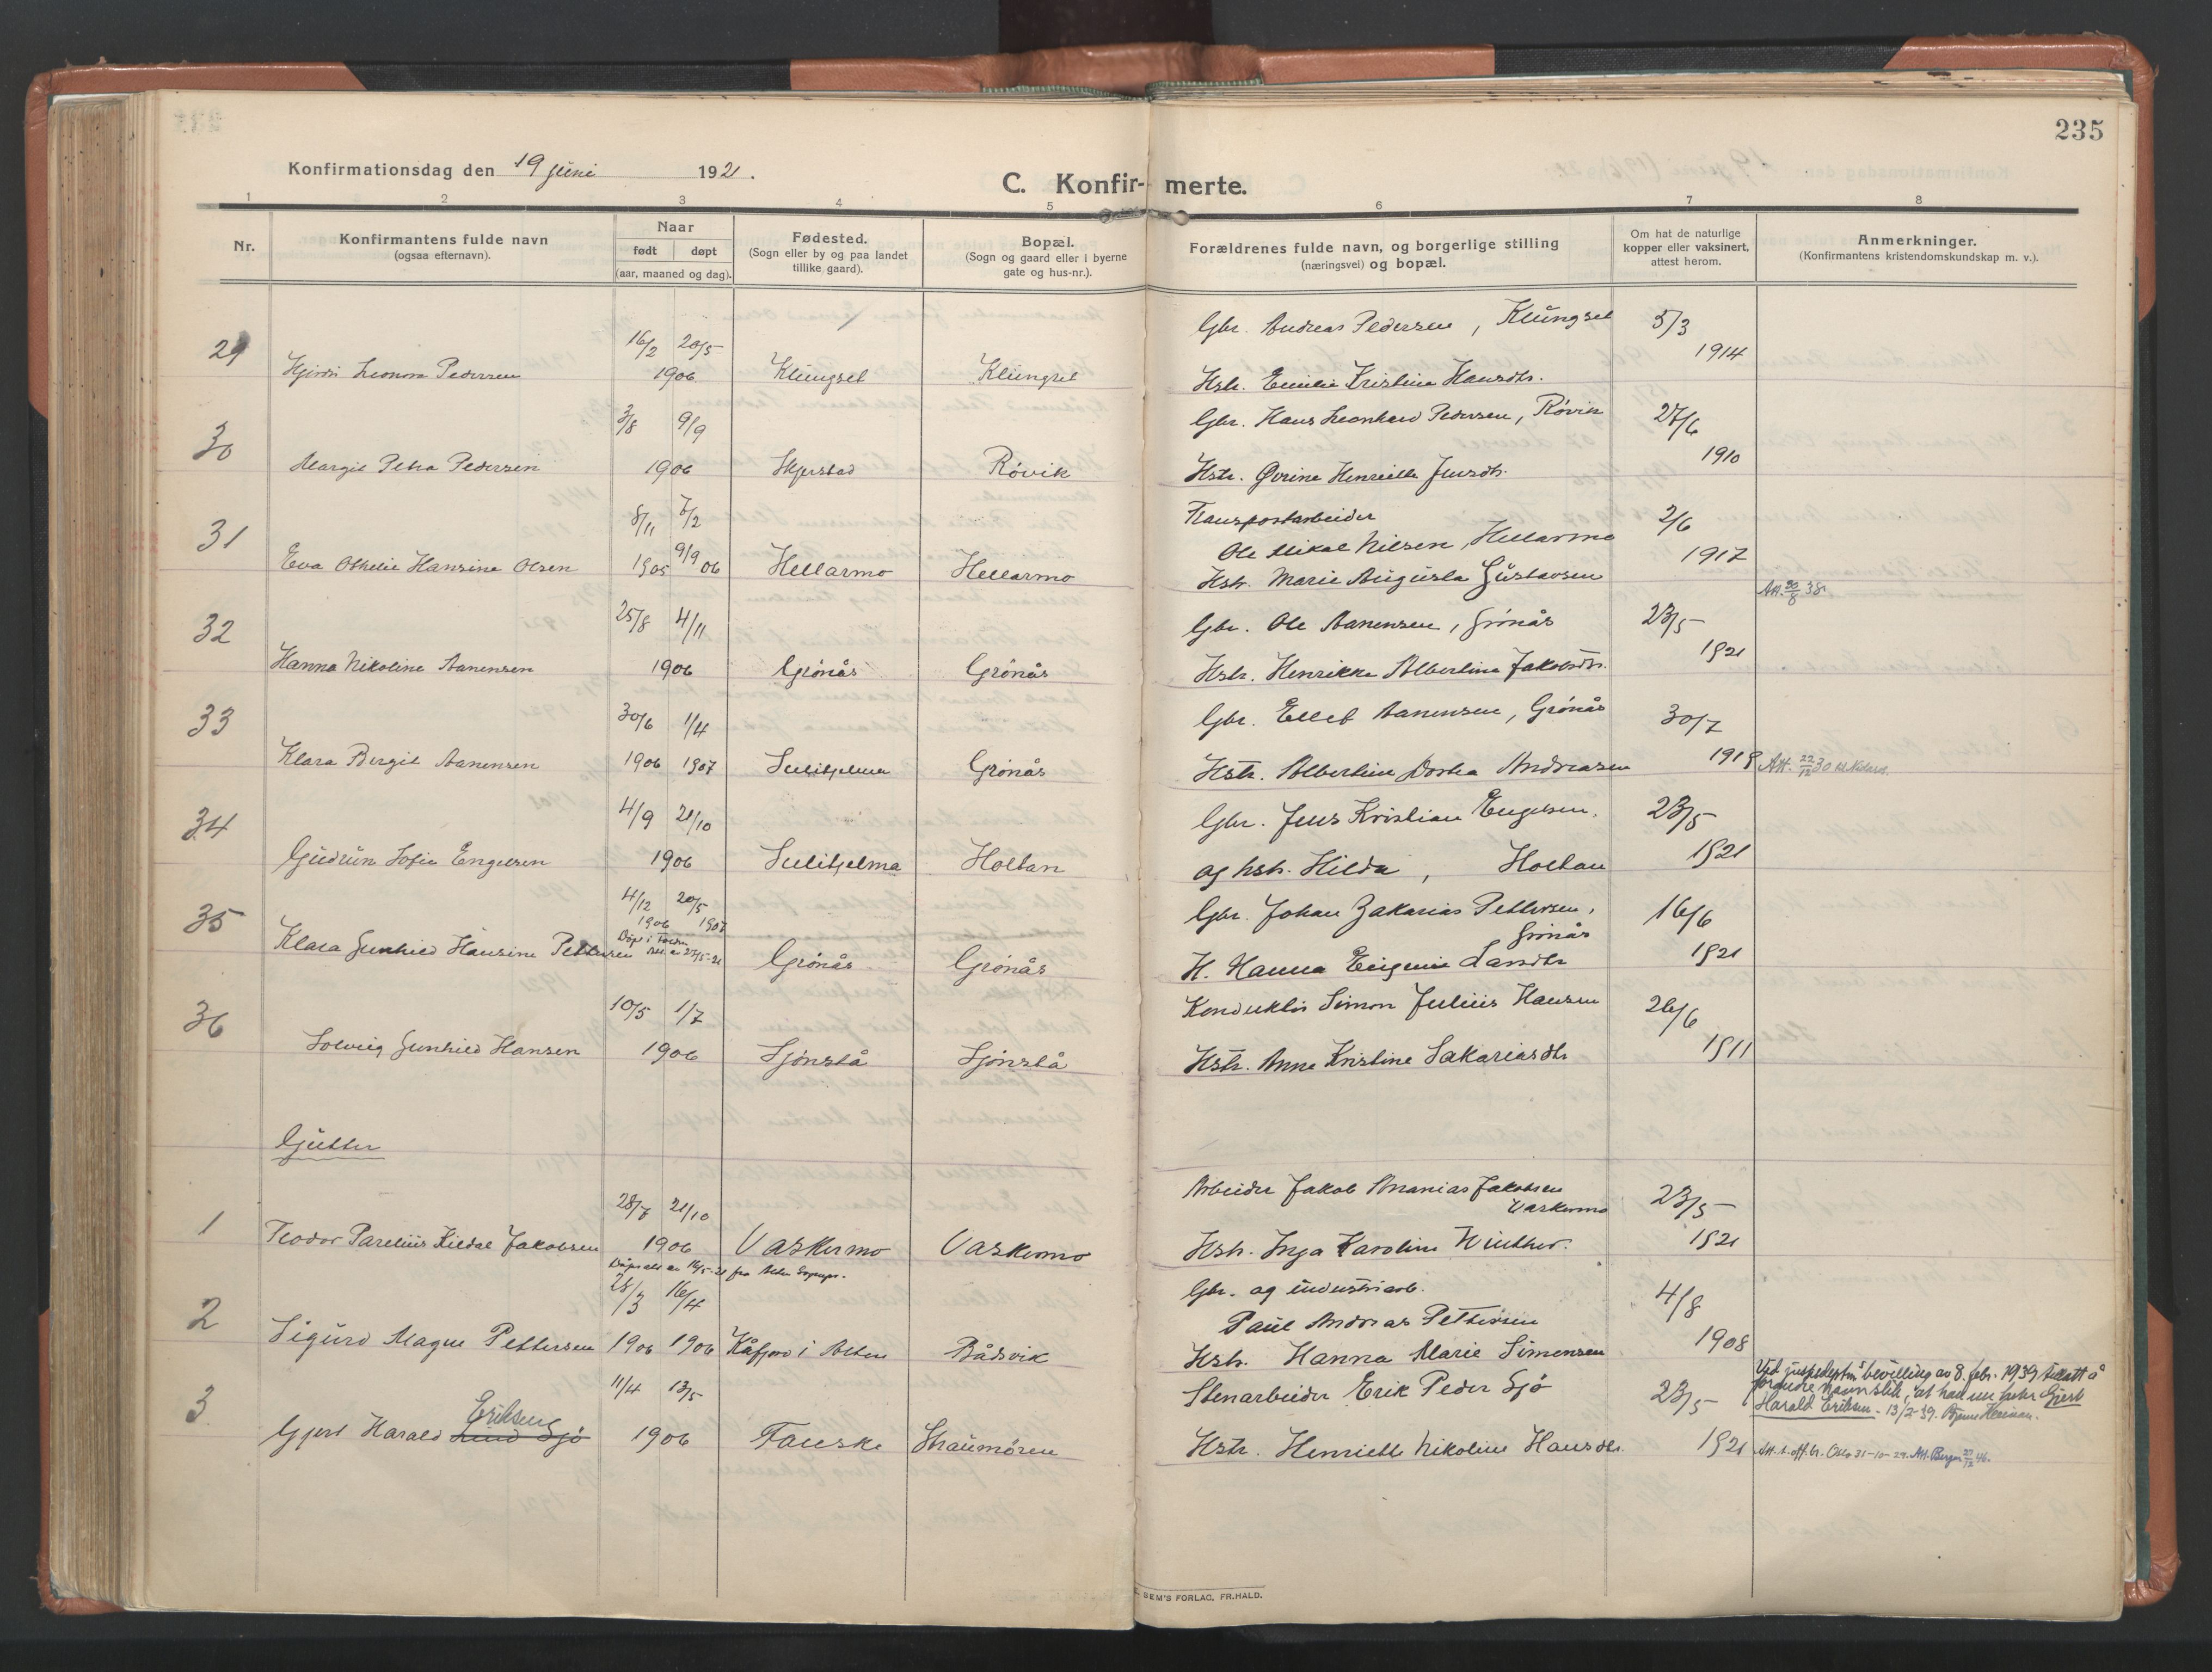 235
Konfirmationsdag den 19 juni 1921.
C. Konfir- merte.
1 2 3 4 5 6 7 8
Nr.
Konfirmantens fulde navn
(ogsaa efternavn).
Naar
født døpt
(aar, maaned og dag).
Fødested.
(Sogn eller by og paa landet
tillike gaard).
Bopæl.
(Sogn og gaard eller i byerne
gate og hus-nr.).
Forældrenes fulde navn, og borgerlige stilling
(næringsvei) og bopæl.
Om hat de naturlige
kopper eller vaksinert,
attest herom.
Anmerkninger.
(Konfirmantens kristendomskundskap m. v.).
Gbr. Andreas Pedersen, Klungset 5/3
29 16/2 20/5 1914
Hjørdis Leonora Pedersen 1906 Klungset Klungset Hstr. Emilie Kristine Hansdtr.
3/8 9/9 Gbr. Hans Leonhard Pedersen, Røvik 27/6
30 1910
Margit Petra Pedersen 1906 Skjerstad Røvik Hstr. Øvrine Henriette Jensdtr.
8/11 7/2 Transportarbeider 2/6
31 Ole Mikal Nilsen, Hellarmo
Eva Othelie Hansine Olsen 1905 9/9 06 Hellarmo Hellarmo 1917
Hstr. Marie Augusta Gustavsen Att. 30/8 38.
25/8 4/11 Gbr. Ole Aanensen, Grønås 23/5
32 1921
Hanna Nikoline Aanensen 1906 Grønås Grønås Hstr. Henrikke Albertine Jakobsdtr.
30/6 1/4 Gbr. Ellef Aanensen, Grønås 30/7
33
Klara Bergit Aanensen 1906 1907 Sulitjelma Grønås Hstr. Albertine Dortea Andreasen 1919 Att. 22/12 30 til Nidaros.
4/9 21/10 Gbr. Jens Kristian Engelsen, 23/5
34
Gudrun Sofie Engelsen 1906 Sulitjelma Holtan og hstr. Hilda, Holtan 1921
4/12 20/5 Gbr. Johan Zakarias Pettersen, 16/6
35 1906 1907 Grønås
Klara Gunhild Hansine Pettersen Grønås Grønås H. Hanna Eugenie Larsdtr 1921
10/5 1/7 Konduktør Simon Julius Hansen 26/6
36
Solveig Gunhild Hansen 1906 Sjønstå Sjønstå Hstr. Anne Kristine Sakariasdtr 1911
Gutter
28/7 21/10 Arbeider Jakob Ananias Jakobsen 23/5
1 Vaskermo
Teodor Parelius Kildal Jakobsen 1906 Vaskermo Vaskermo Hstr. Inga Karoline Winther. 1921
Dåpsatt. av 16/5-21 fra Alten Sognepr.
28/3 16/4 Gbr. og industriarb. 4/8
2 Paul Andreas Pettersen
Sigurd Magne Pettersen 1906 1906 Kåfjord i Alten Bådsvik Hstr. Hanna Marie Simensen 1908
11/4 13/5 Stenarbeider Erik Peder Sjö 23/5
3 Eriksen
Gjert Harald Lund Sjö 1906 Fauske Straumøren Hstr. Henriette Nikoline Hansdtr. 1921
Ved justisdeptm's bevilling av 8. febr. 1939 tillatt å
forandre navn slik, at han nu heter Gjert
Harald Eriksen - 13/2-39.
Att. t. off. br. Oslo 31-10-29. Att. Bergen 27/12 46.
SEM'S FORLAG, FR.HALD.